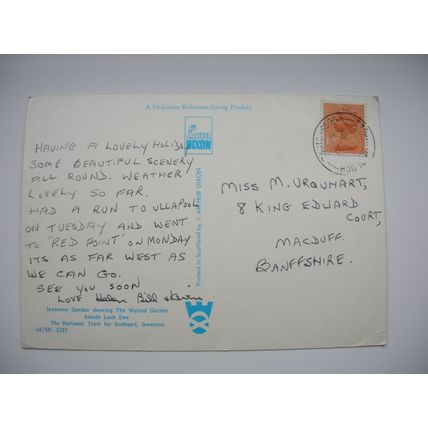 A Dickinson Robinson Group Product
HAVING A LOVELY HOLIDAY
SOME BEAUTIFUL SCENERY
ALL ROUND. WEATHER
LOVELY SO FAR.
HAD A RUN TO ULLAPOOL
ON TUESDAY AND WENT
TO "RED POINT" ON MONDAY
ITS AS FAR WEST AS
WE CAN GO.
SEE YOU SOON
LOVE Helen Bill & Kevin
Inverewe Garden showing The Walled Garden
beside Loch Ewe
The National Trust for Scotland, Inverewe
DIXON
Printed in Scotland by J. ARTHUR DIXON
MISS M. URQUHART,
8 KING EDWARD
COURT,
MACDUFF.
BANFFSHIRE.